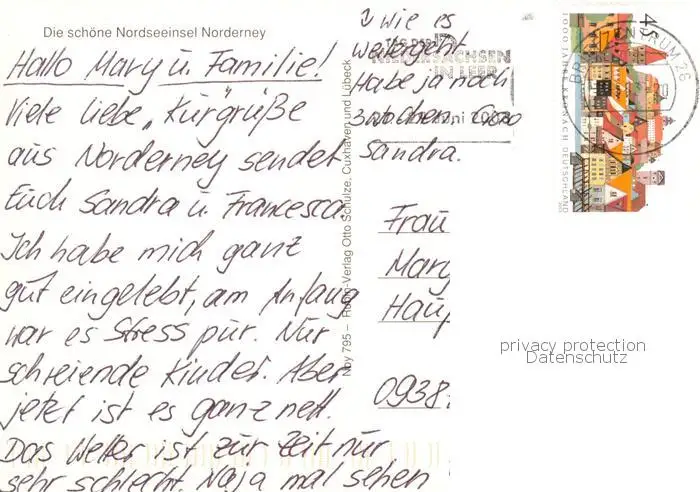 Die schöne Nordseeinsel Norderney
Hallo Mary u. Familie!
Viele liebe „Kur“grüße
aus Norderney sendet
Euch Sandra u. Francesca.
Ich habe mich ganz
gut eingelebt, am Anfang
war es Stress pur. Nur
schreiende Kinder. Aber
jetzt ist es ganz nett.
Das Wetter ist zur Zeit nur
sehr schlecht. Naja mal sehen
wie es
weitergeht.
Habe ja noch
3 Wochen.
Sandra.
TAG DER
NIEDERSACHSEN
IN LEER
Noy 795 – Verlag Otto Schulze, Cuxhaven und Lübeck
Frau
Mary
Hau
0938
45
1000 JAHRE KRONACH DEUTSCHLAND
BRIEFZENTRUM 26
privacy protection
Datenschutz